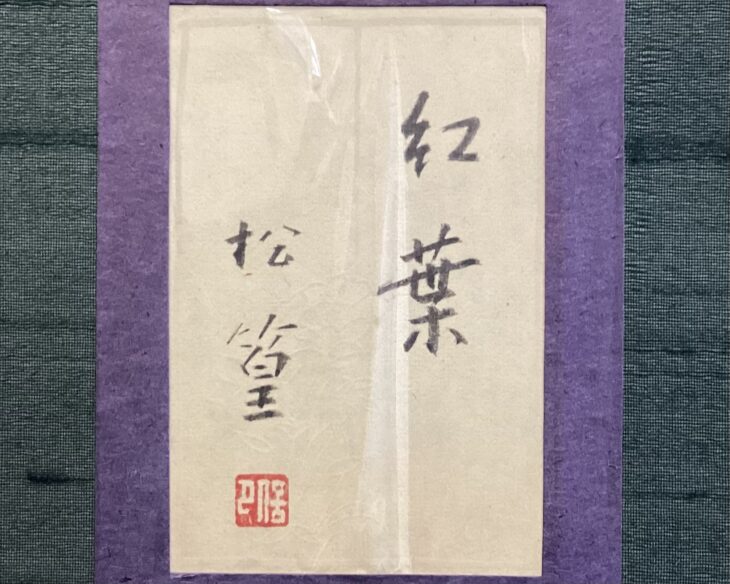 紅葉
松篁